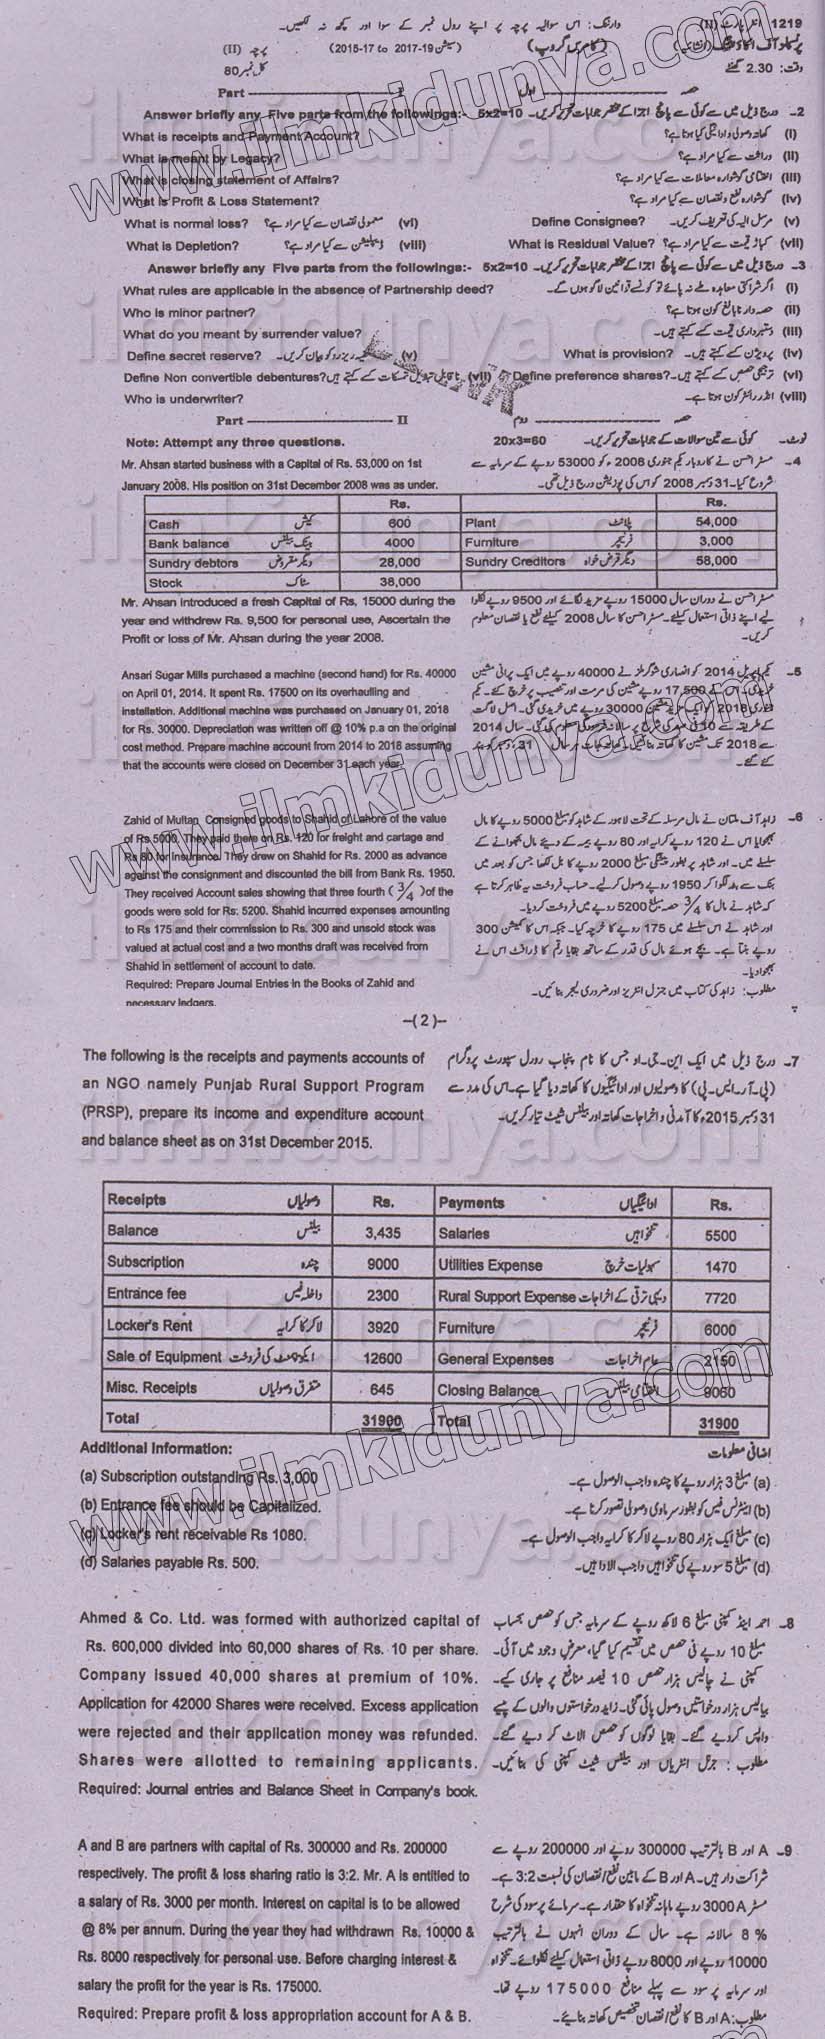 1219 انٹر پارٹ (II) وارننگ: اس سوالیہ پرچہ پر اپنے رول نمبر کے سوا اور کچھ نہ لکھیں۔
پرنسپلز آف اکاؤنٹنگ (انشائیہ) (کامرس گروپ) (سیشن 2015-17 to 2017-19) پرچہ (II)
وقت: 2.30 گھنٹے کل نمبر 80
Part I حصہ اول
Answer briefly any Five parts from the followings:- 5x2=10 2۔ درج ذیل میں سے کوئی سے پانچ اجزا کے مختصر جوابات تحریر کریں۔
What is receipts and Payment Account? (i) کھاتہ وصولی و ادائیگی کیا ہوتا ہے؟
What is meant by Legacy? (ii) وراثت سے کیا مراد ہے؟
What is closing statement of Affairs? (iii) اختتامی گوشوارہ معاملات سے کیا مراد ہے؟
What is Profit & Loss Statement? (iv) گوشوارہ نفع و نقصان سے کیا مراد ہے؟
What is normal loss? (vi) معمولی نقصان سے کیا مراد ہے؟ Define Consignee? (v) مرسل الیہ کی تعریف کریں۔
What is Depletion? (viii) ڈیپلیشن سے کیا مراد ہے؟ What is Residual Value? (vii) کباڑ قیمت سے کیا مراد ہے؟
Answer briefly any Five parts from the followings:- 5x2=10 3۔ درج ذیل میں سے کوئی سے پانچ اجزا کے مختصر جوابات تحریر کریں۔
What rules are applicable in the absence of Partnership deed? (i) اگر شراکتی معاہدہ طے نہ پائے تو کونسے قوانین لاگو ہوں گے۔
Who is minor partner? (ii) حصہ دار نابالغ کون ہوتا ہے؟
What do you meant by surrender value? (iii) دستبرداری قیمت کسے کہتے ہیں۔
Define secret reserve? (v) خفیہ ریزرو کو بیان کریں۔ What is provision? (iv) پرویژن کسے کہتے ہیں۔
Define Non convertible debentures? (vii) ناقابل تبدیل تمسکات کسے کہتے ہیں؟ Define preference shares? (vi) ترجیحی حصص کسے کہتے ہیں۔
Who is underwriter? (viii) انڈر رائٹر کون ہوتا ہے۔
Part II حصہ دوم
Note: Attempt any three questions. 20x3=60 نوٹ۔ کوئی سے تین سوالات کے جوابات تحریر کریں۔
Mr. Ahsan started business with a Capital of Rs. 53,000 on 1st 4۔ مسٹر احسن نے کاروبار یکم جنوری 2008ء کو 53000 روپے کے سرمایہ سے
January 2008. His position on 31st December 2008 was as under. شروع کیا۔ 31 دسمبر 2008 کو اس کی پوزیشن درج ذیل تھی۔
Rs. Rs.
Cash کیش 600 Plant پلانٹ 54,000
Bank balance بینک بیلنس 4000 Furniture فرنیچر 3,000
Sundry debtors دیگر مقروض 28,000 Sundry Creditors دیگر قرض خواہ 58,000
Stock سٹاک 38,000
Mr. Ahsan introduced a fresh Capital of Rs, 15000 during the مسٹر احسن نے دوران سال 15000 روپے مزید لگائے اور 9500 روپے نکلوا
year and withdrew Rs. 9,500 for personal use, Ascertain the لیے اپنے ذاتی استعمال کیلئے۔ مسٹر احسن کا سال 2008 کیلئے نفع یا نقصان معلوم
Profit or loss of Mr. Ahsan during the year 2008. کریں۔
Ansari Sugar Mills purchased a machine (second hand) for Rs. 40000 5۔ یکم اپریل 2014 کو انصاری شوگر ملز نے 40000 روپے میں ایک پرانی مشین
on April 01, 2014. It spent Rs. 17500 on its overhauling and خریدی۔ اس نے 17,500 روپے مشین کی مرمت اور تنصیب پر خرچ کئے۔ یکم
installation. Additional machine was purchased on January 01, 2018 جنوری 2018 کو ایک مزید مشین 30000 روپے میں خریدی گئی۔ اصل لاگت
for Rs. 30000. Depreciation was written off @ 10% p.a on the original کے طریقہ سے 10 فی صد کی شرح پر سالانہ فرسودگی معلوم کی گئی۔ سال 2014
cost method. Prepare machine account from 2014 to 2018 assuming سے 2018 تک مشین کا کھاتہ بنائیں۔ کھاتہ جات ہر سال 31 دسمبر کو بند
that the accounts were closed on December 31 each year. کئے گئے۔
Zahid of Multan Consigned goods to Shahid of Lahore of the value 6۔ زاہد آف ملتان نے مال مرسلہ کے تحت لاہور کے شاہد کو مبلغ 5000 روپے کا مال
of Rs 5000. They paid there on Rs. 120 for freight and cartage and بھجوایا اس نے 120 روپے کرایہ اور 80 روپے بیمہ کے دیئے مال بھجوانے کے
Rs 80 for Insurance. They drew on Shahid for Rs. 2000 as advance سلسلے میں۔ اور شاہد پر بطور پیشگی مبلغ 2000 روپے کا بل لکھا جس کو بعد میں
against the consignment and discounted the bill from Bank Rs. 1950. بنک سے بٹہ لگوا کر 1950 روپے وصول کر لیے۔ حساب فروخت یہ ظاہر کرتا ہے
They received Account sales showing that three fourth (3/4) of the کہ شاہد نے مال کا 3/4 حصہ مبلغ 5200 روپے میں فروخت کر دیا۔
goods were sold for Rs. 5200. Shahid incurred expenses amounting اور شاہد نے اس سلسلے میں 175 روپے کا خرچہ کیا۔ جبکہ اس کا کمیشن 300
to Rs 175 and their commission to Rs. 300 and unsold stock was روپے بنتا ہے۔ بچے ہوئے مال کی قدر کے ساتھ بقایا رقم کا ڈرافٹ اس نے
valued at actual cost and a two months draft was received from بھجوا دیا۔
Shahid in settlement of account to date.
Required: Prepare Journal Entries in the Books of Zahid and مطلوب: زاہد کی کتاب میں جنرل انٹریز اور ضروری لیجر بنائیں۔
necessary ledgers.
–(2)–
The following is the receipts and payments accounts of 7۔ درج ذیل میں ایک این۔جی۔او جس کا نام پنجاب رورل سپورٹ پروگرام
an NGO namely Punjab Rural Support Program (پی۔آر۔ایس۔پی) کا وصولیوں اور ادائیگیوں کا کھاتہ دیا گیا ہے۔ اس کی مدد سے
(PRSP), prepare its income and expenditure account 31 دسمبر 2015ء کا آمدنی و اخراجات کھاتہ اور بیلنس شیٹ تیار کریں۔
and balance sheet as on 31st December 2015.
Receipts وصولیاں Rs. Payments ادائیگیاں Rs.
Balance بیلنس 3,435 Salaries تنخواہیں 5500
Subscription چندہ 9000 Utilities Expense سہولیات خرچ 1470
Entrance fee داخلہ فیس 2300 Rural Support Expense دیہی ترقی کے اخراجات 7720
Locker's Rent لاکر کا کرایہ 3920 Furniture فرنیچر 6000
Sale of Equipment ایکوپمنٹ کی فروخت 12600 General Expenses عام اخراجات 2150
Misc. Receipts متفرق وصولیاں 645 Closing Balance اختتامی بیلنس 9060
Total 31900 Total 31900
Additional Information: اضافی معلومات
(a) Subscription outstanding Rs. 3,000 (a) مبلغ 3 ہزار روپے کا چندہ واجب الوصول ہے۔
(b) Entrance fee should be Capitalized. (b) اینٹرنس فیس کو بطور سرمایہ وصولی تصور کرنا ہے۔
(c) Locker's rent receivable Rs 1080. (c) مبلغ ایک ہزار 80 روپے لاکر کا کرایہ واجب الوصول ہے۔
(d) Salaries payable Rs. 500. (d) مبلغ 5 سو روپے کی تنخواہیں واجب الادا ہیں۔
Ahmed & Co. Ltd. was formed with authorized capital of 8۔ احمد اینڈ کمپنی مبلغ 6 لاکھ روپے کے سرمایہ جس کو حصص بحساب
Rs. 600,000 divided into 60,000 shares of Rs. 10 per share. مبلغ 10 روپے فی حصص میں تقسیم کیا گیا، معرض وجود میں آئی۔
Company issued 40,000 shares at premium of 10%. کمپنی نے چالیس ہزار حصص 10 فیصد منافع پر جاری کیے۔
Application for 42000 Shares were received. Excess application بیالیس ہزار درخواستیں وصول پائی گئی۔ زاید درخواستوں والوں کے پیسے
were rejected and their application money was refunded. واپس کر دیے گئے۔ بقایا لوگوں کو حصص الاٹ کر دیے گئے۔
Shares were allotted to remaining applicants. مطلوب: جرنل انٹریاں اور بیلنس شیٹ کمپنی کی بنائیں۔
Required: Journal entries and Balance Sheet in Company's book.
A and B are partners with capital of Rs. 300000 and Rs. 200000 9۔ A اور B بالترتیب 300000 روپے اور 200000 روپے سے
respectively. The profit & loss sharing ratio is 3:2. Mr. A is entitled to شراکت دار ہیں۔ A اور B کے مابین نفع/نقصان کی نسبت 3:2 ہے۔
a salary of Rs. 3000 per month. Interest on capital is to be allowed مسٹر A 3000 روپے ماہانہ تنخواہ کا حقدار ہے۔ سرمائے پر سود کی شرح
@ 8% per annum. During the year they had withdrawn Rs. 10000 & 8 % سالانہ ہے۔ سال کے دوران انہوں نے بالترتیب
Rs. 8000 respectively for personal use. Before charging interest & 10000 روپے اور 8000 روپے ذاتی استعمال کیلئے نکلوائے۔ تنخواہ
salary the profit for the year is Rs. 175000. اور سرمایہ پر سود سے پہلے منافع 175000 روپے تھا۔
Required: Prepare profit & loss appropriation account for A & B. مطلوب: A اور B کا نفع/نقصان تخصیص کھاتہ بنائیے۔
www.ilmkidunya.com